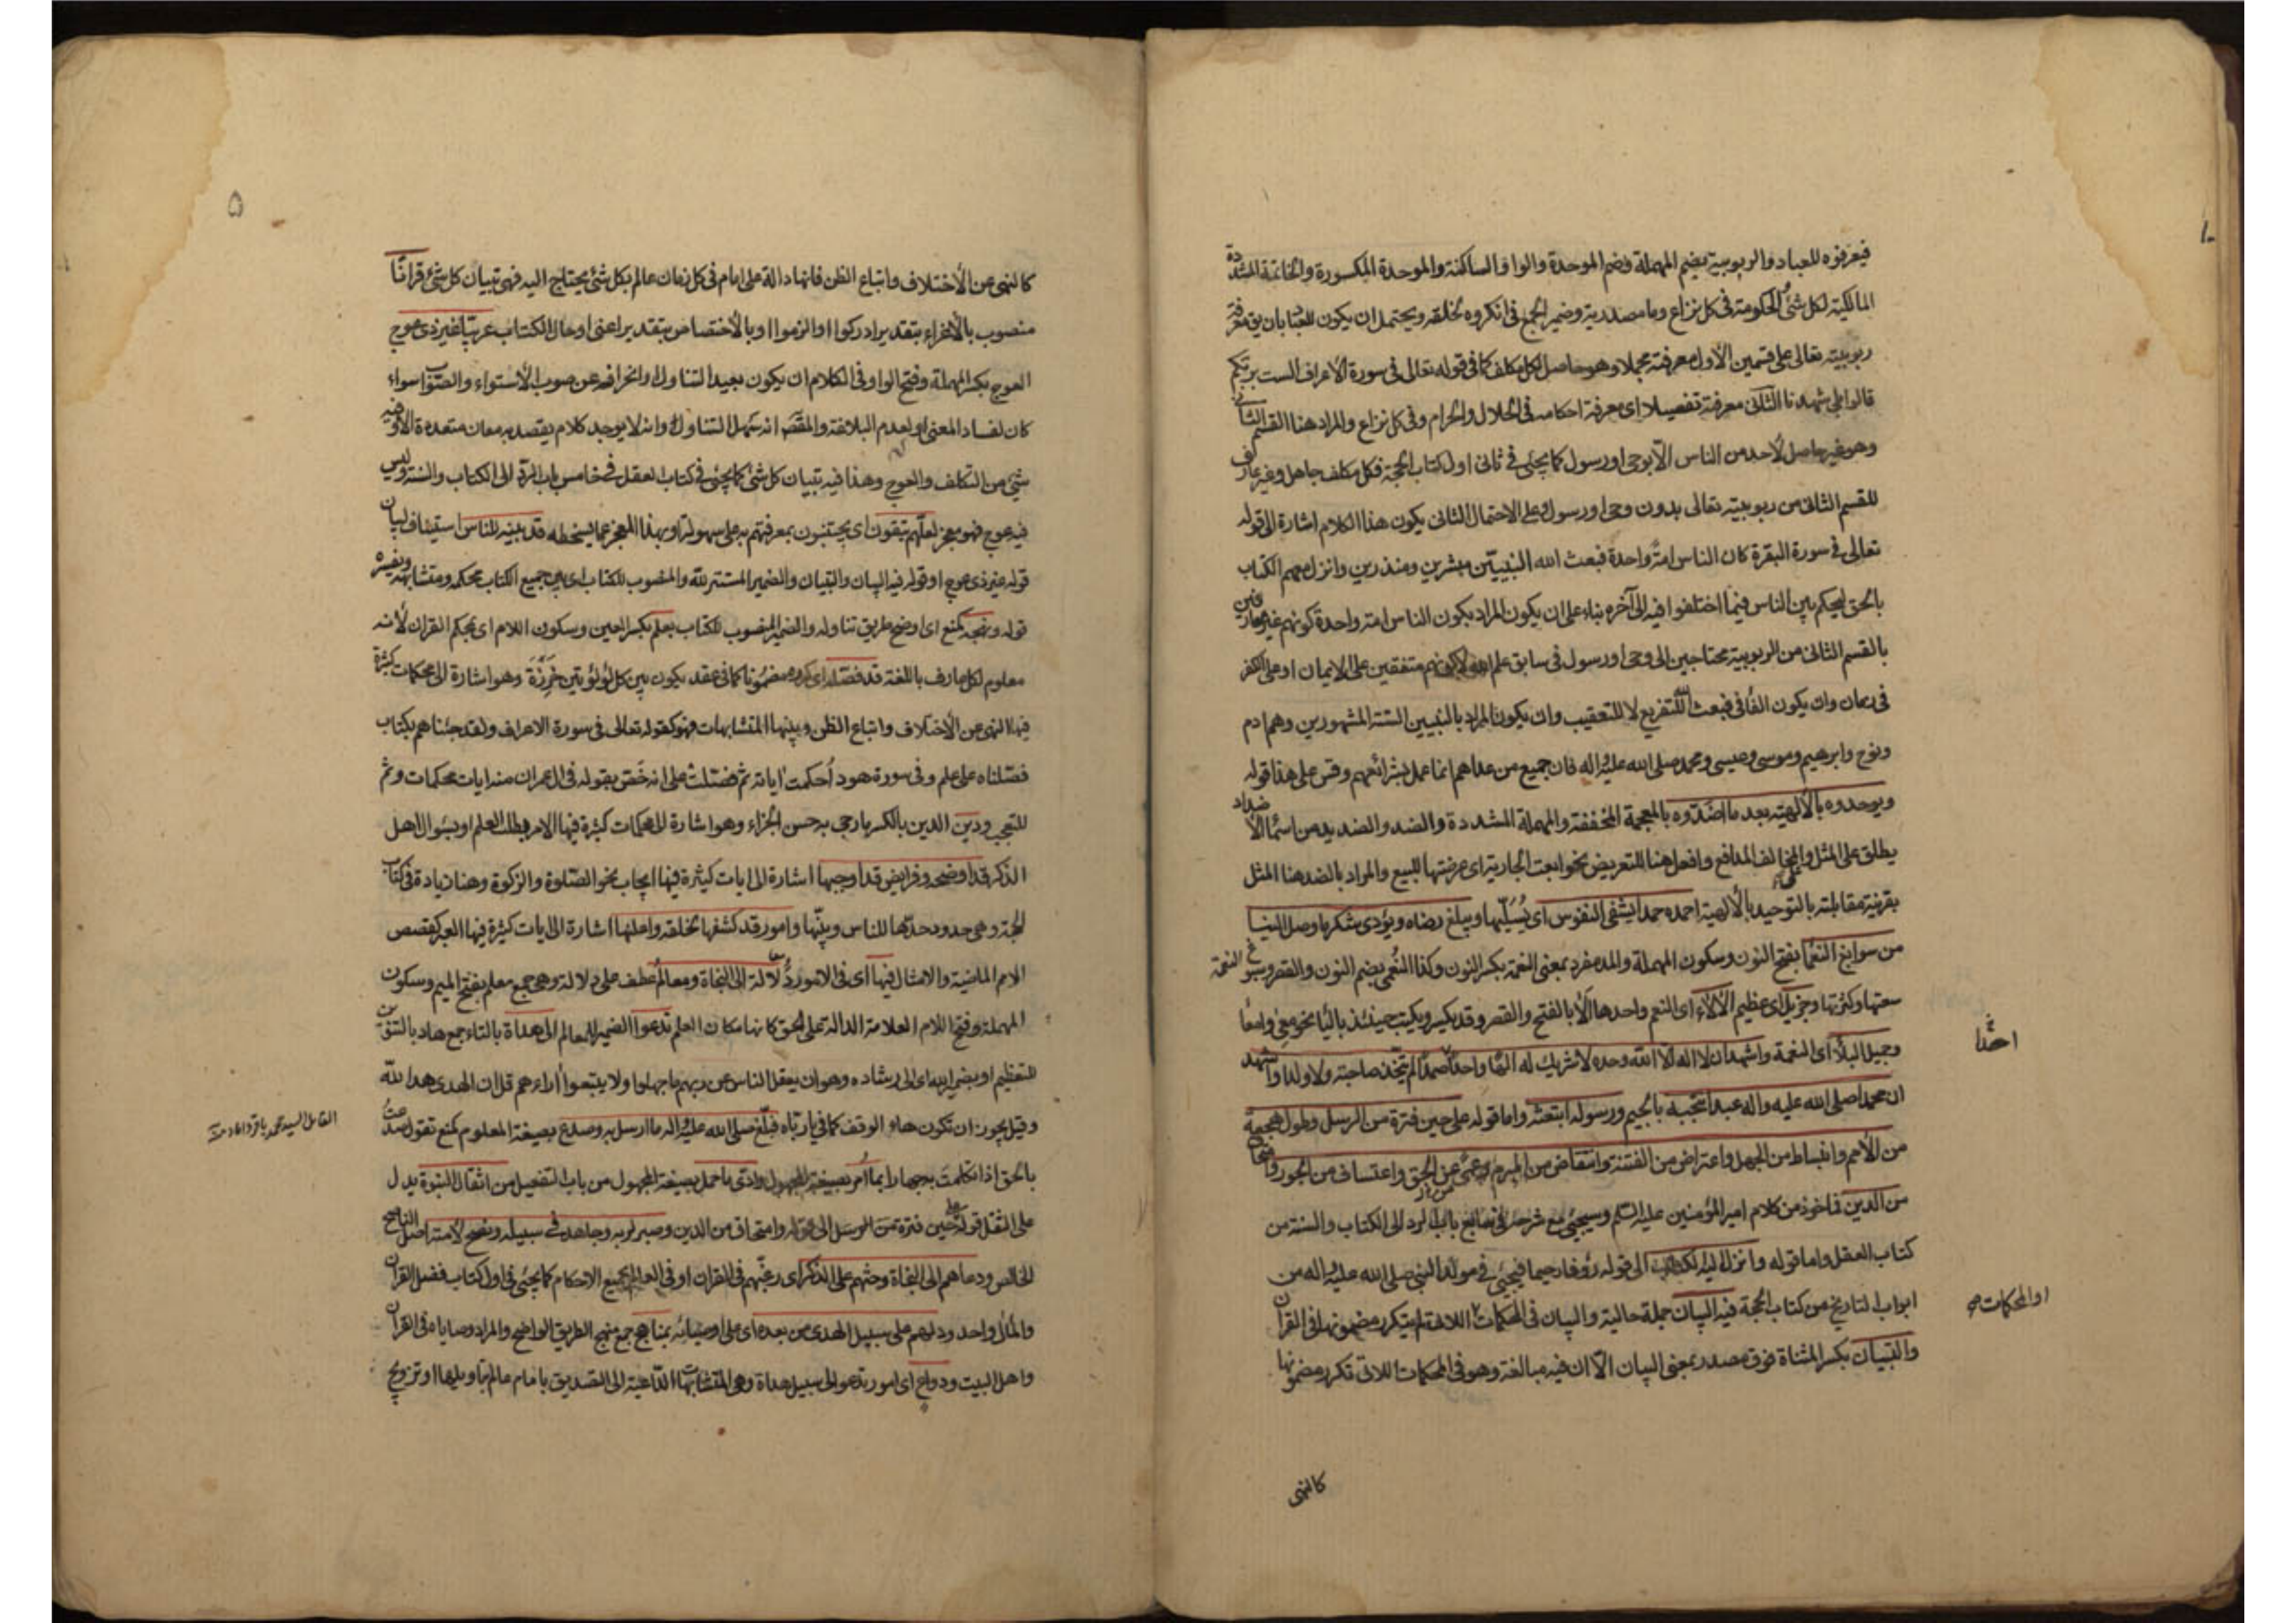 فيعرفوه للعباد والربوبية بضم المهملة وضم الموحدة والواو الساكنة والموحدة المكسورة والخاتمة المشددة
المالكية لكل شئ الحكومة في كل نزاع وما مصدرية وضمير الجمع في انكروه لخلقه ويحتمل ان يكون للعباد بان يق معرفة
ربوبيته تعالى على قسمين الأول معرفته مجملا وهو حاصل لكل مكلف كما في قوله تعالى في سورة الاعراف الست بربكم
قالوا بلى شهدنا الثانى معرفته تفصيلا اى معرفة احكامه في الحلال والحرام وفي كل نزاع والمراد هنا القسم الثانى
وهو غير حاصل لأحد من الناس الا بوحى او رسول كما يجئ في ثانى اول كتاب الحجة فكل مكلف جاهل وغير عارف
للقسم الثانى من ربوبيته تعالى بدون وحى او رسول على الاحتمال الثانى يكون هذا الكلام اشارة الى قوله
تعالى في سورة البقرة كان الناس امة واحدة فبعث الله النبيين مبشرين ومنذرين وانزل معهم الكتاب
بالحق ليحكم بين الناس فيما اختلفوا فيه الى آخره بناء على ان يكون المراد بكون الناس امة واحدة كونهم غير عارفين
بالقسم الثانى من الربوبية محتاجين الى وحى او رسول في سابق علم الله لا كونهم متفقين على الايمان او على الكفر
في زمان وان يكون الفا في فبعث الله للتفريع لا للتعقيب وان يكون المراد بالنبيين الستة المشهورين وهم ادم
ونوح وابرهيم وموسى وعيسى ومحمد صلى الله عليه واله فان جميع من عداهم انما عمل بشرائعهم وقس على هذا قوله
ويوحدوه بالألهية بعد ما اضدوه بالمعجمة المخففة والمهملة المشددة والضد والضديد من اسما الأضداد
يطلق على المثل والمخالف المدافع وافعل هنا للتعريض نحو ابعت الجارية اى عرضتها للبيع والمراد بالضد هنا المثل
بقرينة مقابلته بالتوحيد بالألهية احمده حمدا يشفى النفوس اى يسليها ويبلغ رضاه ويؤدى شكر ما وصل الينا
من سوابغ النعما بفتح النون وسكون المهملة والمد مفرد بمعنى النعمة بكسر النون وكذا النعمى بضم النون والقصر وسبوغ النعمة
سعتها وكثرتها وجزيل اى عظيم الآلاء اى النعم واحدها الا بالفتح والقصر وقد يكسر ويكتب حينئذ باليا نحو معى وامعا
وجميل البلا اى النعمة واشهد ان لا اله الا الله وحده لا شريك له الها واحدا صمدا لم يتخذ صاحبة ولا ولدا واشهد
ان محمدا صلى الله عليه واله عبد انتجبه بالجيم ورسوله ابتعثه واما قوله على حين فترة من الرسل وطول هجعة
من الأمم وانبساط من الجهل واعتراض من الفتنة وانتقاض من المبرم وعمى عن الحق واعتساف من الجور وامتحاق
من الدين فماخوذ من كلام امير المؤمنين عليه السلم وسيجئ مع شرحه في سابع باب الرد الى الكتاب والسنة من
كتاب العقل واما قوله وانزل اليه الكتاب الى قوله رؤفا رحيما فيجئ في مولد النبى صلى الله عليه واله من
ابواب التاريخ من كتاب الحجة فيه البيان جملة حالية والبيان في المحكمات اللاتى لم يتكرر مضمونها في القران
والتبيان بكسر المثناة فوق مصدر بمعنى البيان الا ان فيه مبالغة وهو في المحكمات اللاتى تكرر مضمونها
او المحكمات
كالنهى
۵
كالنهى عن الأختلاف واتباع الظن فانها دالة على امام في كل زمان عالم بكل شئ يحتاج اليه فهى تبيان كل شئ قرانا
منصوب بالأغراء بتقدير ادركوا او الزموا او بالأختصاص بتقدير اعنى او حال الكتاب عربيا غير ذى عوج
العوج بكسر المهملة وفتح الواو في الكلام ان يكون بعيد التناول وانحرافه عن صوب الأستواء والصواب سواء
كان لفساد المعنى او لعدم البلاغة والمقصد انه سهل التناول وانه لا يوجد كلام يقصد به معان متعددة الا وفيه
شئ من التكلف والعوج وهذا فيه تبيان كل شئ كما يجئ في كتاب العقل في خامس باب الرد الى الكتاب والسنة وليس
فيه عوج فهو معجز لعلهم يتقون اى يجتنبون بمعرفتهم به على سهولة او بهذا المعجز عما يسخطه قد بينه للناس استيناف لبيان
قوله غير ذى عوج او قوله فيه البيان والتبيان والضمير المستتر لله والمنصوب للكتاب اى بين جميع الكتاب محكمه ومتشابهه وتفسيره
قوله ونهجه كمنع اى اوضح طريق تناوله والضمير المنصوب للكتاب بعلم بكسر العين وسكون اللام اى بمحكم القران لأنه
معلوم لكل عارف باللغة قد فصله اى كرره مضمونا كما في عقد يكون بين كل لؤلؤتين خرزة وهو اشارة الى محكمات كثيرة
فيها النهى عن الأختلاف واتباع الظن وبينها المتشابهات فهو كقوله تعالى في سورة الاعراف ولقد جئناهم بكتاب
فصلناه على علم وفي سورة هود احكمت اياته ثم فصلت على انه خص بقوله في ال عمران منه ايات محكمات وثم
للتعجب ودين الدين بالكسر ما رجى به حسن الجزاء وهو اشارة الى محكمات كثيرة فيها الامر بطلب العلم او بسوال اهل
الذكر قد اوضحه وفرايض قد اوجبها اشارة الى ايات كثيرة فيها ايجاب نحو الصلوة والزكوة وهنا زيادة في كتاب
الحجة وهى حدود حدها للناس وبينها وامور قد كشفها لخلقه واعلنها اشارة الى ايات كثيرة فيها العبر كقصص
الامم الماضية والامثال فيها اى في الامور دلالة الى النجاة ومعالم عطف على دلالة وهى جمع معلم بفتح الميم وسكون
المهملة وفتح اللام العلامة الدالة على الحق كانها مكان العلم تدعوا الضمير للمعالم الى هداة بالتاء جمع هاد بالتنوين
للتعظيم او بضمير الله اى الى رشاده وهو ان يعقل الناس عن ربهم ما جهلوا ولا يتبعوا اراءهم قل ان الهدى هدا الله
وقيل يجوز ان تكون هاء الوقف كما في يا رباه فبلغ صلى الله عليه واله ما ارسل به وصدع بصيغة المعلوم كمنع تقول صدعت
بالحق اذا تكلمت به جهارا بما امر بصيغة المجهول وادى ما حمل بصيغة المجهول من باب التفعيل من اثقال النبوة يدل
على الثقل قوله على حين فترة من الرسل الى قوله وامتحاق من الدين وصبر لربه وجاهد في سبيله ونصح لامته اصل النصح
الخالص ودعاهم الى النجاة وحثهم على الذكر اى رغبهم في القران او في العالم بجميع الاحكام كما يجئ في اول كتاب فضل القران
والمأل واحد ودلهم على سبيل الهدى من بعده اى على اوصيائه بمناهج جمع منهج الطريق الواضح والمراد وصاياه في القران
واهل البيت ودواع اى امور تدعو الى سبيل هداة وهى المتشابهات الداعية الى التصديق بامام عالم بتاويلها او تزويج
القائل السيد محمد باقر داماد